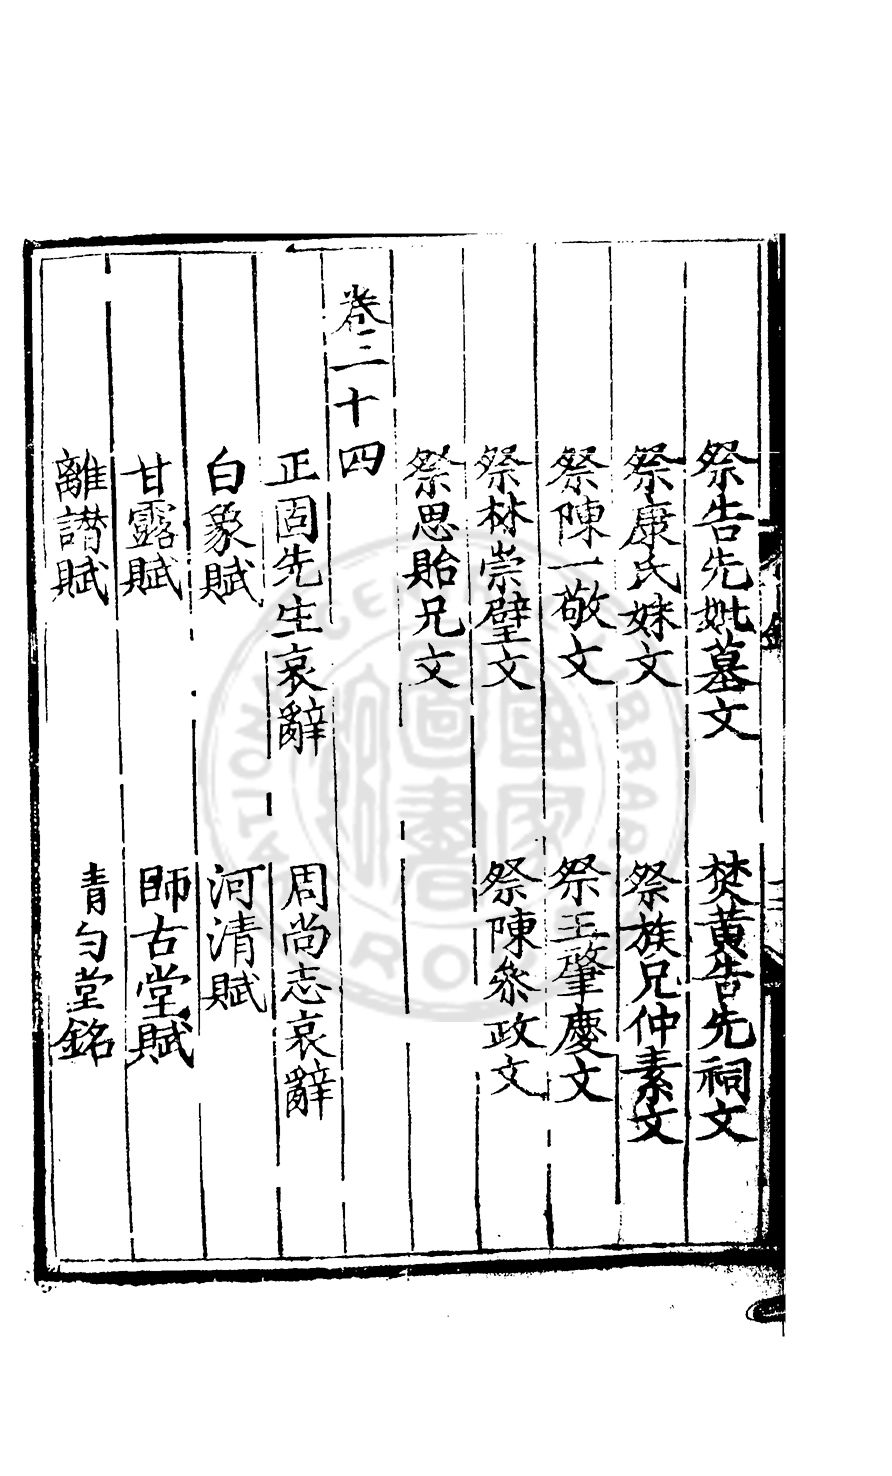 祭告先妣墓文　焚黃告先祠文
祭康氏妹文　祭族兄仲素文
祭陳一敬文　祭王肇慶文
祭林崇璧文　祭陳叅政文
祭思貽兄文
卷三十四
正固先生哀辭　周尚志哀辭
白象賦　河清賦
甘露賦　師古堂賦
離譛賦　青勻堂銘